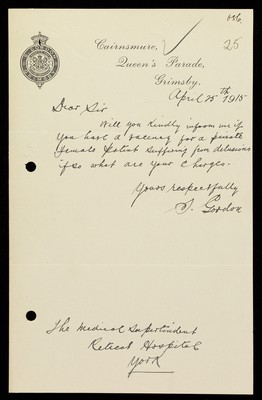 25
Cairnsmuire,
Queen's Parade,
Grimsby.
April 25th 1915
Dear Sir
Will you kindly inform me if
you have a vacancy for a private
female patient suffering from delusions
if so what are your Charges.
Yours respectfully
J. Gordon
The Medical Supertindent
Retreat Hospital
York